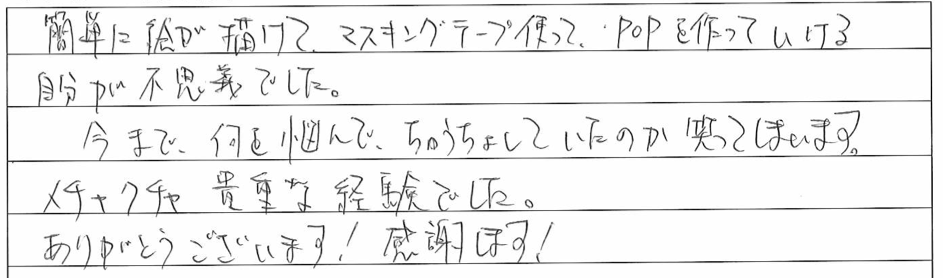 簡単に絵が描けて、マスキングテープ使って、POPを作っていける
自分が不思義でした。
今まで、何を悩んで、ちゅうちょしていたのか笑ってしまいます。
メチャクチャ貴重な経験でした。
ありがとうございます！感謝します！